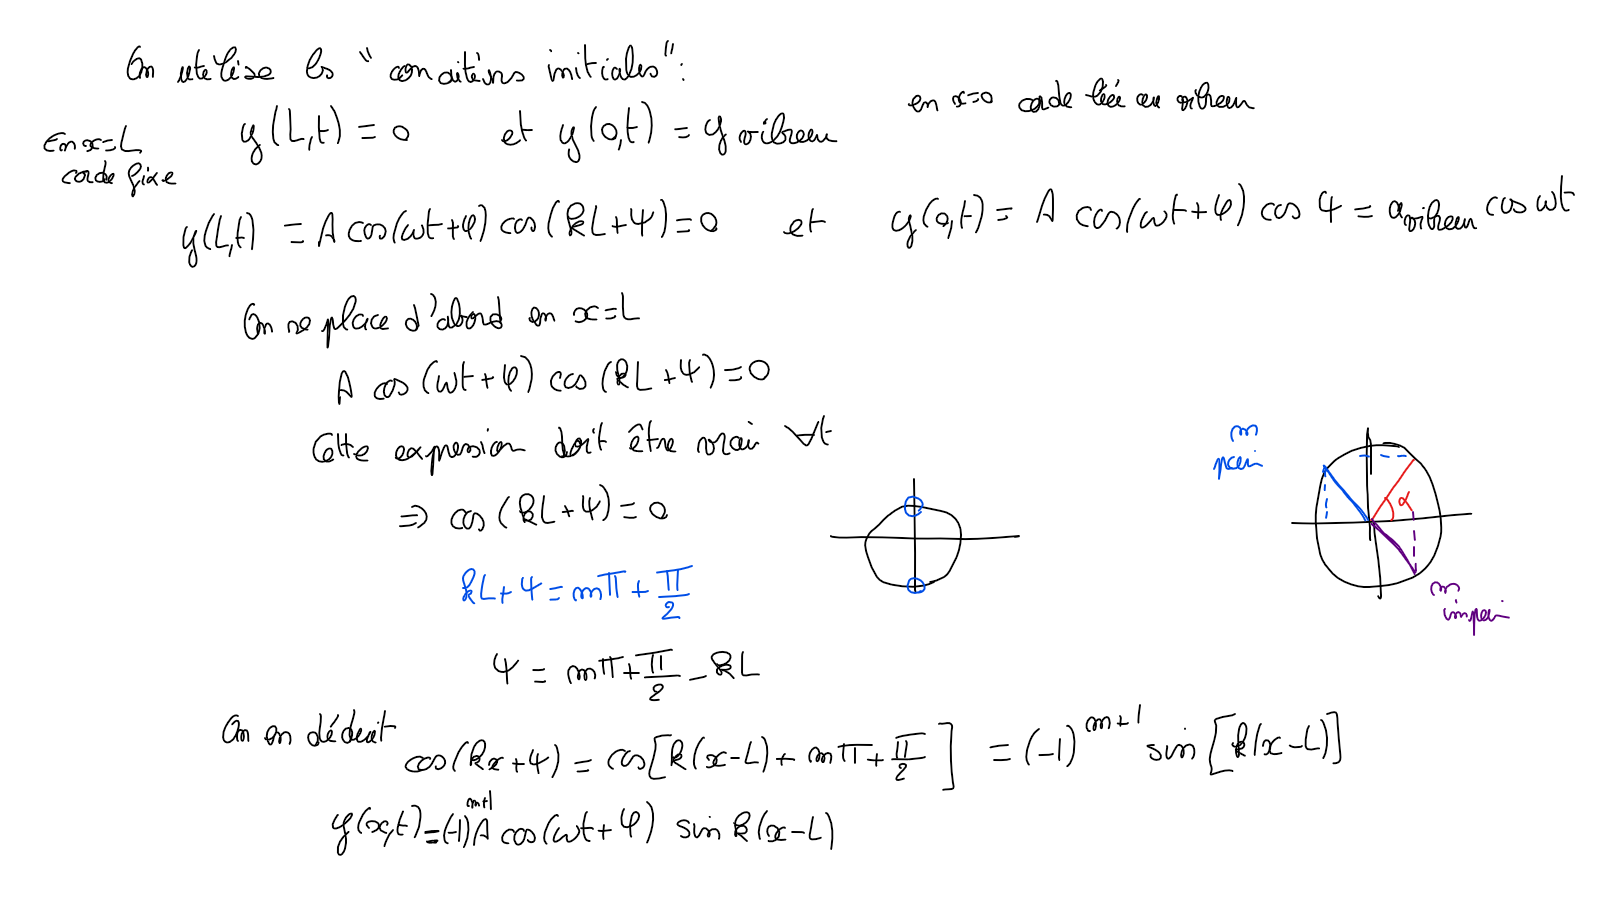 On utilise les "conditions initiales":
en x=0 corde liée au vibreur
En x=L
corde fixe
y(L,t) = 0 et y(0,t) = y vibreur
y(L,t) = A cos(ωt+φ) cos(kL+ψ)=0 et y(0,t) = A cos(ωt+φ) cos ψ = a vibreur cos ωt
On se place d'abord en x=L
A cos(ωt+φ) cos(kL+ψ)=0
Cette expression doit être vrai ∀t
⇒ cos(kL+ψ)=0
m
pair
α
m
impair
kL+ψ = mπ + π/2
ψ = mπ + π/2 - kL
On en déduit
cos(kx+ψ) = cos[k(x-L) + mπ + π/2] = (-1)^{m+1} sin[k(x-L)]
y(x,t) = (-1)^{m+1} A cos(ωt+φ) sin k(x-L)